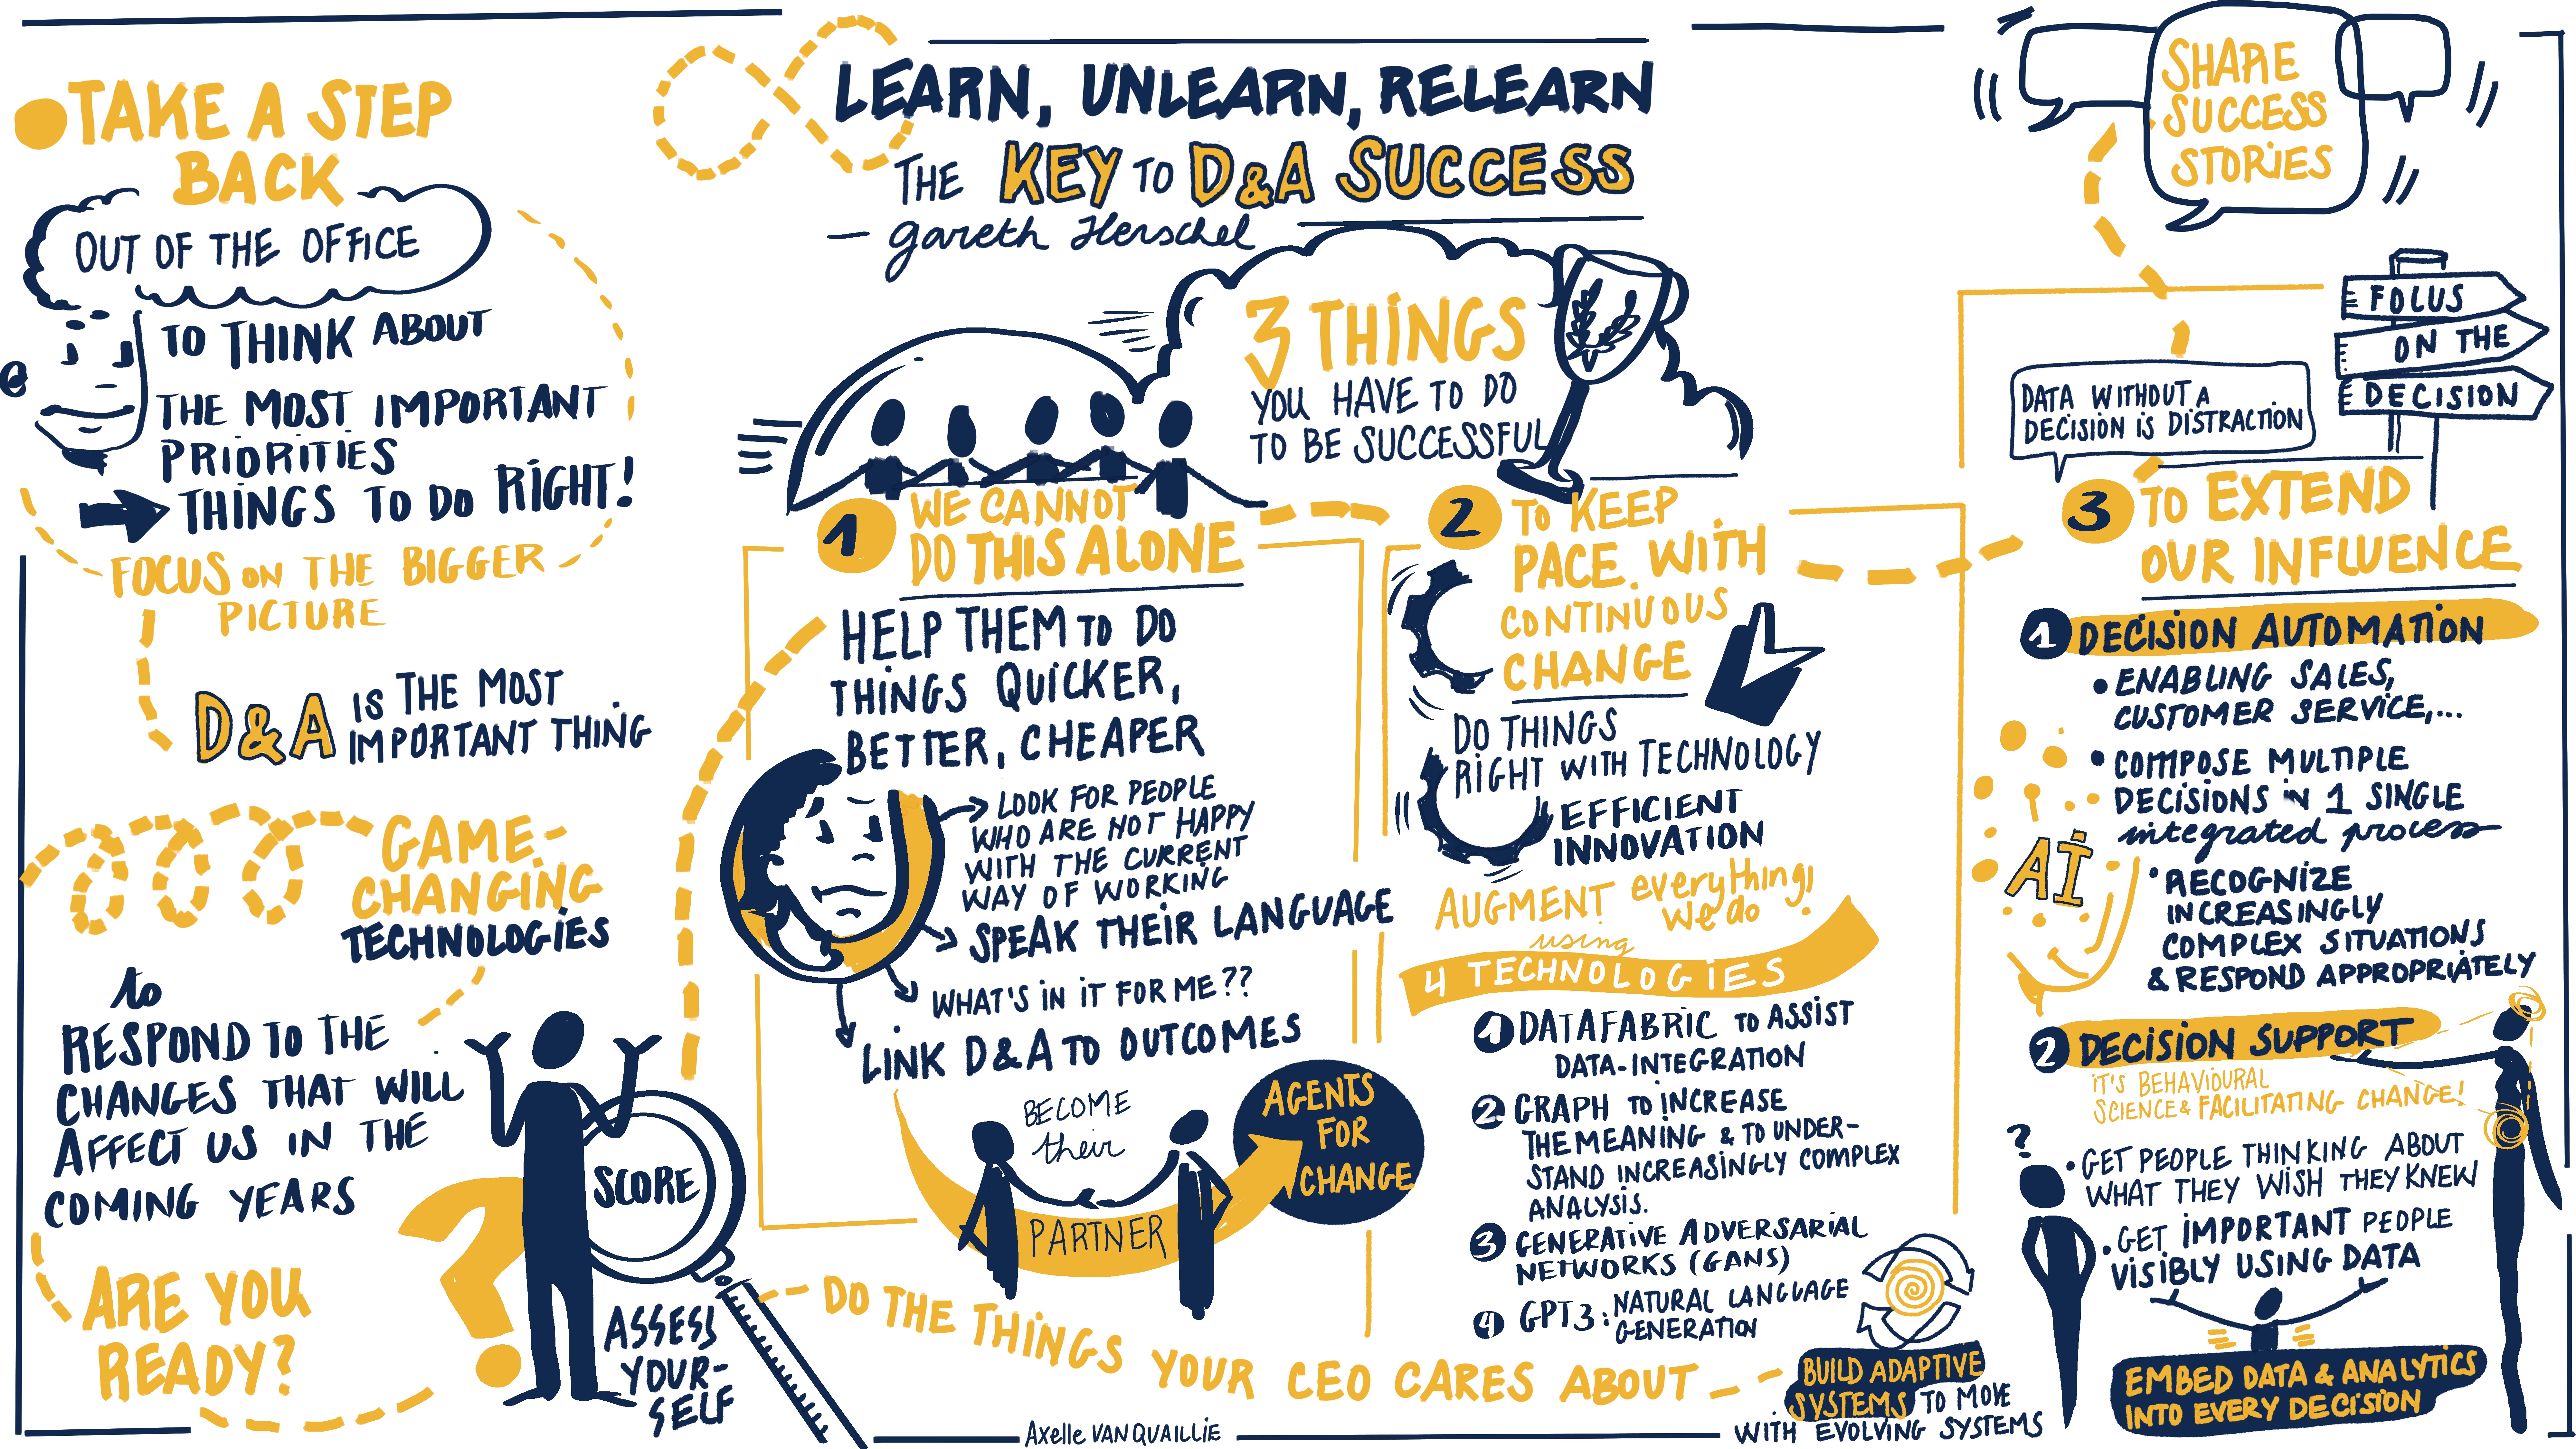 TAKE A STEP
BACK
OUT OF THE OFFICE
TO THINK ABOUT
THE MOST IMPORTANT
PRIORITIES
THINGS TO DO RIGHT!
FOCUS ON THE BIGGER
PICTURE
D&A IS THE MOST
IMPORTANT THING
GAME-
CHANGING
TECHNOLOGIES
to
RESPOND TO THE
CHANGES THAT WILL
AFFECT US IN THE
COMING YEARS
ARE YOU
READY?
?
SCORE
ASSESS
YOUR-
SELF
LEARN, UNLEARN, RELEARN
THE KEY TO D&A SUCCESS
— gareth Herschel
3 THINGS
YOU HAVE TO DO
TO BE SUCCESSFUL
1 WE CANNOT
DO THIS ALONE
HELP THEM TO DO
THINGS QUICKER,
BETTER, CHEAPER
LOOK FOR PEOPLE
WHO ARE NOT HAPPY
WITH THE CURRENT
WAY OF WORKING
SPEAK THEIR LANGUAGE
WHAT'S IN IT FOR ME??
LINK D&A TO OUTCOMES
BECOME
their
PARTNER
AGENTS
FOR
CHANGE
DO THE THINGS YOUR CEO CARES ABOUT
2 TO KEEP
PACE WITH
CONTINUOUS
CHANGE
DO THINGS
RIGHT WITH TECHNOLOGY
EFFICIENT
INNOVATION
AUGMENT everything!
we do
using
4 TECHNOLOGIES
1 DATAFABRIC TO ASSIST
DATA-INTEGRATION
2 GRAPH TO INCREASE
THE MEANING & TO UNDER-
STAND INCREASINGLY COMPLEX
ANALYSIS.
3 GENERATIVE ADVERSARIAL
NETWORKS (GANS)
4 GPT3: NATURAL LANGUAGE
GENERATION
BUILD ADAPTIVE
SYSTEMS TO MOVE
WITH EVOLVING SYSTEMS
SHARE
SUCCESS
STORIES
FOCUS
ON THE
DECISION
DATA WITHOUT A
DECISION IS DISTRACTION
3 TO EXTEND
OUR INFLUENCE
1 DECISION AUTOMATION
• ENABLING SALES,
CUSTOMER SERVICE,...
• COMPOSE MULTIPLE
DECISIONS IN 1 SINGLE
integrated process
• RECOGNIZE
INCREASINGLY
COMPLEX SITUATIONS
& RESPOND APPROPRIATELY
AI
2 DECISION SUPPORT
IT'S BEHAVIOURAL
SCIENCE & FACILITATING CHANGE!
?
• GET PEOPLE THINKING ABOUT
WHAT THEY WISH THEY KNEW
• GET IMPORTANT PEOPLE
VISIBLY USING DATA
EMBED DATA & ANALYTICS
INTO EVERY DECISION
Axelle VANQUAILLIE